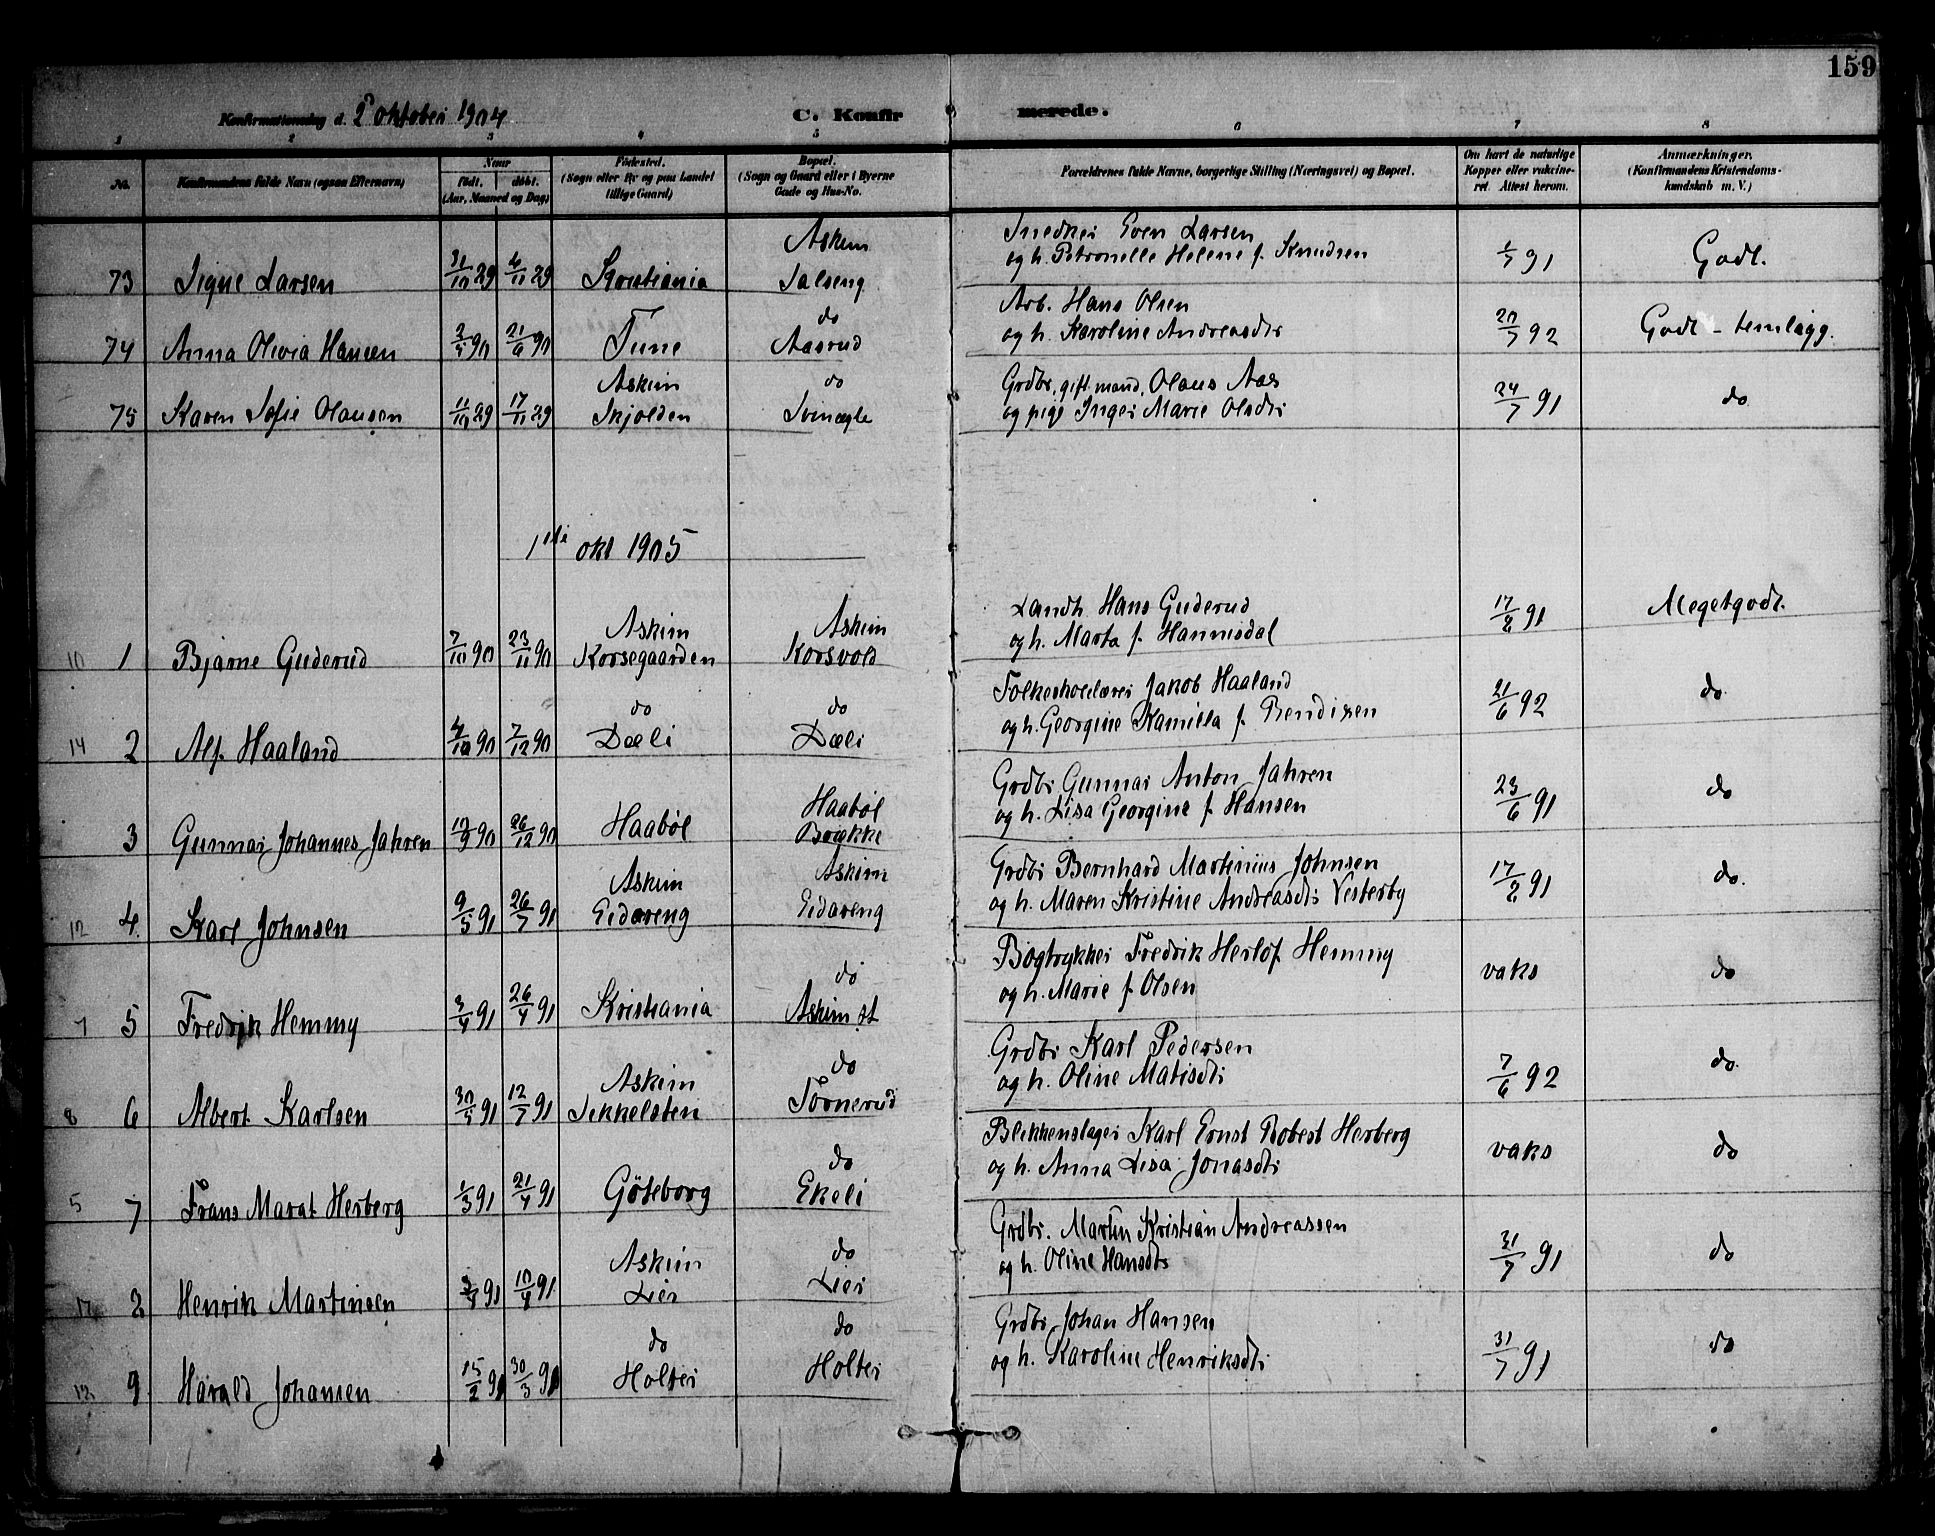 159
Konfirmationsdag d. 2 oktober 1904
C. Konfirmerede.
1 2 3 4 5 6 7 8
No. | Konfirmandens fulde Navn (ogsaa Efternavn) | Naar født. døbt. (Aar, Maaned og Dag) | Fødested. (Sogn eller By og paa Landet tillige Gaard) | Bopæl. (Sogn og Gaard eller i Byerne Gade og Hus-No. | Forældrenes fulde Navne, borgerlige Stilling (Næringsvei) og Bopæl. | Om havt de naturlige Kopper eller vakcineret. Attest herom. | Anmærkninger. (Konfirmandens Kristendomskundskab m. V.)
Askim | Snedker Even Larsen
73 | Signe Larsen | 31/10 89 | 6/11 89 | Kristiania | Salseng | og h. Petronelle Helene f. Knudsen | 1/7 91 | Godt.
do | Arb. Hans Olsen
74 | Anna Olivia Hansen | 2/5 90 | 21/6 90 | Tune | Aasrud | og h. Karoline Andreasdtr | 20/7 92 | Godt - temlagg.
Askim | do | Grdbr. gift mand, Olaus Aas
75 | Karen Sofie Olausen | 11/10 89 | 17/11 89 | Skjolden | Svinægle | og pige Inger Marie Olsdtr | 24/7 91 | do
1ste okt 1905
Askim | Askim | Landh. Hans Guderud
10 | 1 | Bjarne Guderud | 7/10 90 | 23/11 90 | Korsegaarden | Korsvold | og h. Marta f. Hannisdal | 17/8 91 | Megetgodt.
do | do | Folkeskolelærer Jakob Haaland
14 | 2 | Alf Haaland | 4/10 90 | 7/12 90 | Dæli | Dæli | og h. Georgine Kamilla f. Bendixen | 21/6 92 | do
Haabøl | Grdbr Gunnar Anton Jahren
3 | Gunnar Johannes Jahren | 19/9 90 | 26/12 90 | Haabøl | Brække | og h. Lisa Georgine f. Hansen | 23/6 91 | do
Askim | Askim | Grdbr Bernhard Martinius Johnsen
12 | 4. | Karl Johnsen | 9/5 91 | 26/7 91 | Eidareng | Eidareng | og h. Maren Kristine Andreasdtr Vesterby | 17/8 91 | do.
do | Bogtrykker Fredrik Herlof Hemmy
7 | 5 | Fredrik Hemmy | 3/4 91 | 26/4 91 | Kristiania | Askim st | og h. Marie f. Olsen | vaks | do
Askim | do | Grdbr Karl Pedersen
8 | 6 | Albert Karlsen | 30/5 91 | 12/7 91 | Sekkelsten | Tornerud | og h. Oline Matisdtr | 7/6 92 | do.
do | Blikkenslager Karl Ernst Robert Herberg
5 | 7 | Frans Marat Herberg | 1/3 91 | 21/4 91 | Göteborg | Ekeli | og h. Anna Lisa Jonasdtr | vaks | do
Askim | do | Grdbr. Martin Kristian Andreassen
8 | Henrik Martinsen | 3/4 91 | 10/4 91 | Lier | Lier | og h. Oline Hansdtr | 31/7 91 | do
do | do | Grdbr Johan Hansen
9 | Harald Johansen | 15/2 91 | 30/3 91 | Holter | Holter | og h. Karoline Henriksdtr | 31/7 91 | do